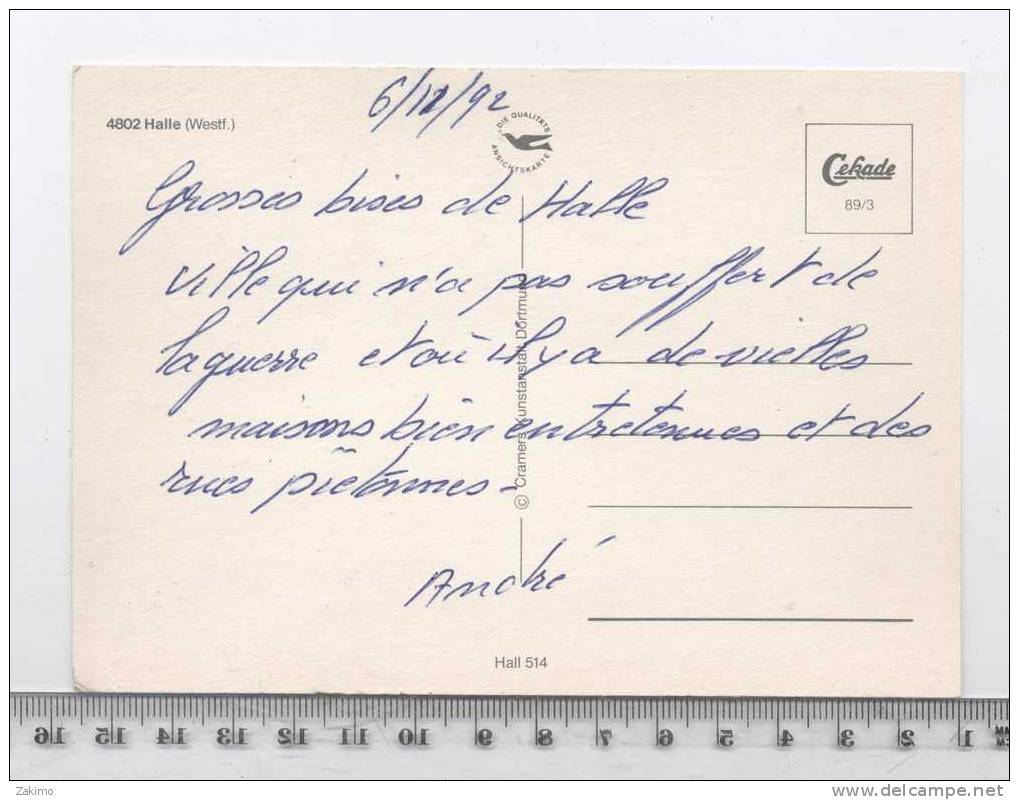 6/12/92
4802 Halle (Westf.)
DIE QUALITÄTS ANSICHTSKARTE
Cekade
89/3
Grosses bises de Halle
ville qui n'a pas souffert de
la guerre et où il y a de vielles
maisons bien entretenues et des
rues piétonnes -
André
© Cramers Kunstanstalt Dortmund
Hall 514
16 15 14 13 12 11 10 9 8 7 6 5 4 3 2 1
Zakimo
http://www.delcampe.net